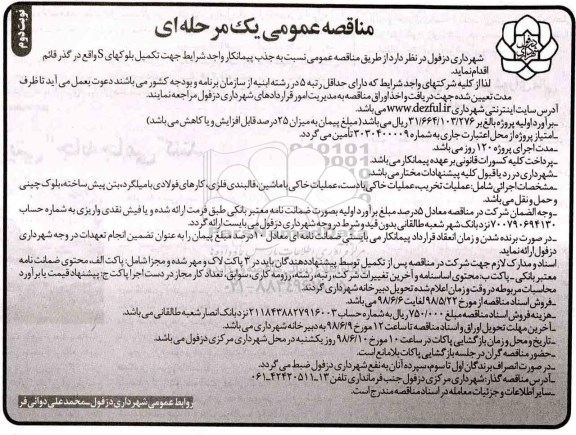 نوبت دوم
مناقصه عمومی یک مرحله ای
شهرداری دزفول در نظر دارد از طریق مناقصه عمومی نسبت به جذب پیمانکار واجد شرایط جهت تکمیل بلوکهای S واقع در گذر قائم
اقدام نماید.
لذا از کلیه شرکتهای واجد شرایط که دارای حداقل رتبه ۵ در رشته ابنیه از سازمان برنامه و بودجه کشور می باشند دعوت بعمل می آید تا ظرف
مدت تعیین شده جهت دریافت و اخذ اوراق مناقصه به مدیریت امور قراردادهای شهرداری دزفول مراجعه نمایند.
آدرس سایت اینترنتی شهرداری www.dezful.ir می باشد.
-برآورد اولیه پروژه بالغ بر ۳۱/۶۶۴/۱۰۳/۲۷۶ ریال می باشد (مبلغ پیمان به میزان ۲۵ درصد قابل افزایش و یا کاهش می باشد)
-امتیاز پروژه از محل اعتبار جاری به شماره ۳۰۳۰۴۰۰۰۰۹ تأمین می گردد.
-مدت اجرای پروژه ۱۲۰ روز می باشد.
-پرداخت کلیه کسورات قانونی بر عهده پیمانکار می باشد.
-شهرداری در رد یا قبول کلیه پیشنهادات مختار می باشد.
-مشخصات اجرائی شامل: عملیات تخریب، عملیات خاکی با دست، عملیات خاکی با ماشین، قالبندی فلزی، کارهای فولادی با میلگرد، بتن پیش ساخته، بلوک چینی
و حمل و نقل می باشد.
-وجه الضمان شرکت در مناقصه معادل ۵ درصد مبلغ برآورد اولیه بصورت ضمانت نامه معتبر بانکی طبق فرمت ارائه شده و یا فیش نقدی واریزی به شماره حساب
۷۰۰۷۹۰۶۹۴۱۳۰ نزد بانک شهر شعبه طالقانی بدون قید و شرط در وجه شهرداری دزفول می بایست ارائه گردد.
-در صورت برنده شدن و زمان انعقاد قرارداد پیمانکار می بایستی ضمانت نامه ای معادل ۱۰ درصد مبلغ پیمان را به عنوان تضمین انجام تعهدات در وجه شهرداری
دزفول ارائه نماید.
اسناد و مدارک لازم جهت شرکت در مناقصه پس از تکمیل توسط پیشنهاددهندگان باید در ۳ پاکت لاک و مهر شده و مجزا شامل: پاکت الف، محتوی ضمانت نامه
معتبر بانکی - پاکت ب: محتوی اساسنامه و آخرین تغییرات شرکت، رتبه، رشته، رزومه کاری، سوابق، تعداد کار مجاز در دست اجرا پاکت ج: پیشنهاد قیمت یا برآورد
محاسبات مربوطه در وقت و زمان اعلام شده تحویل دبیرخانه شهرداری گردند.
-فروش اسناد مناقصه از مورخ ۹۸/۵/۲۲ لغایت ۹۸/۶/۶ می باشد.
-هزینه فروش اسناد مناقصه مبلغ ۷۵۰/۰۰۰ ریال به شماره حساب ۳۱۱۸۴۳۸۸۲۷۹۱۶۰۰۳ نزد بانک انصار شعبه طالقانی می باشد.
-آخرین مهلت تحویل اوراق و اسناد مناقصه تا ساعت ۱۲ مورخ ۹۸/۶/۹ به دبیرخانه شهرداری می باشد.
-تاریخ و محل و زمان بازگشایی پاکات در ساعت ۱۰ مورخ ۹۸/۶/۱۰ روز یکشنبه در محل شهرداری مرکزی دزفول می باشد.
-حضور مناقصه گران در جلسه بازگشایی پاکات بلامانع است.
-در صورت انصراف برندگان اول تا سوم، سپرده آنان به نفع شهرداری دزفول ضبط می گردد.
-آدرس مناقصه گذار: شهرداری مرکزی دزفول جنب فرمانداری تلفن ۱۳-۴۲۴۲۰۵۱۱-۰۶۱
-سایر اطلاعات و جزئیات معامله در اسناد مناقصه مندرج است.
روابط عمومی شهرداری دزفول - محمدعلی دوائی فر